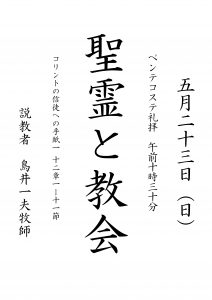 五月二十三日（日）
ペンテコステ礼拝　午前十時三十分
聖霊と教会
コリントの信徒への手紙一 十二章一―十一節
説教者　鳥井一夫牧師